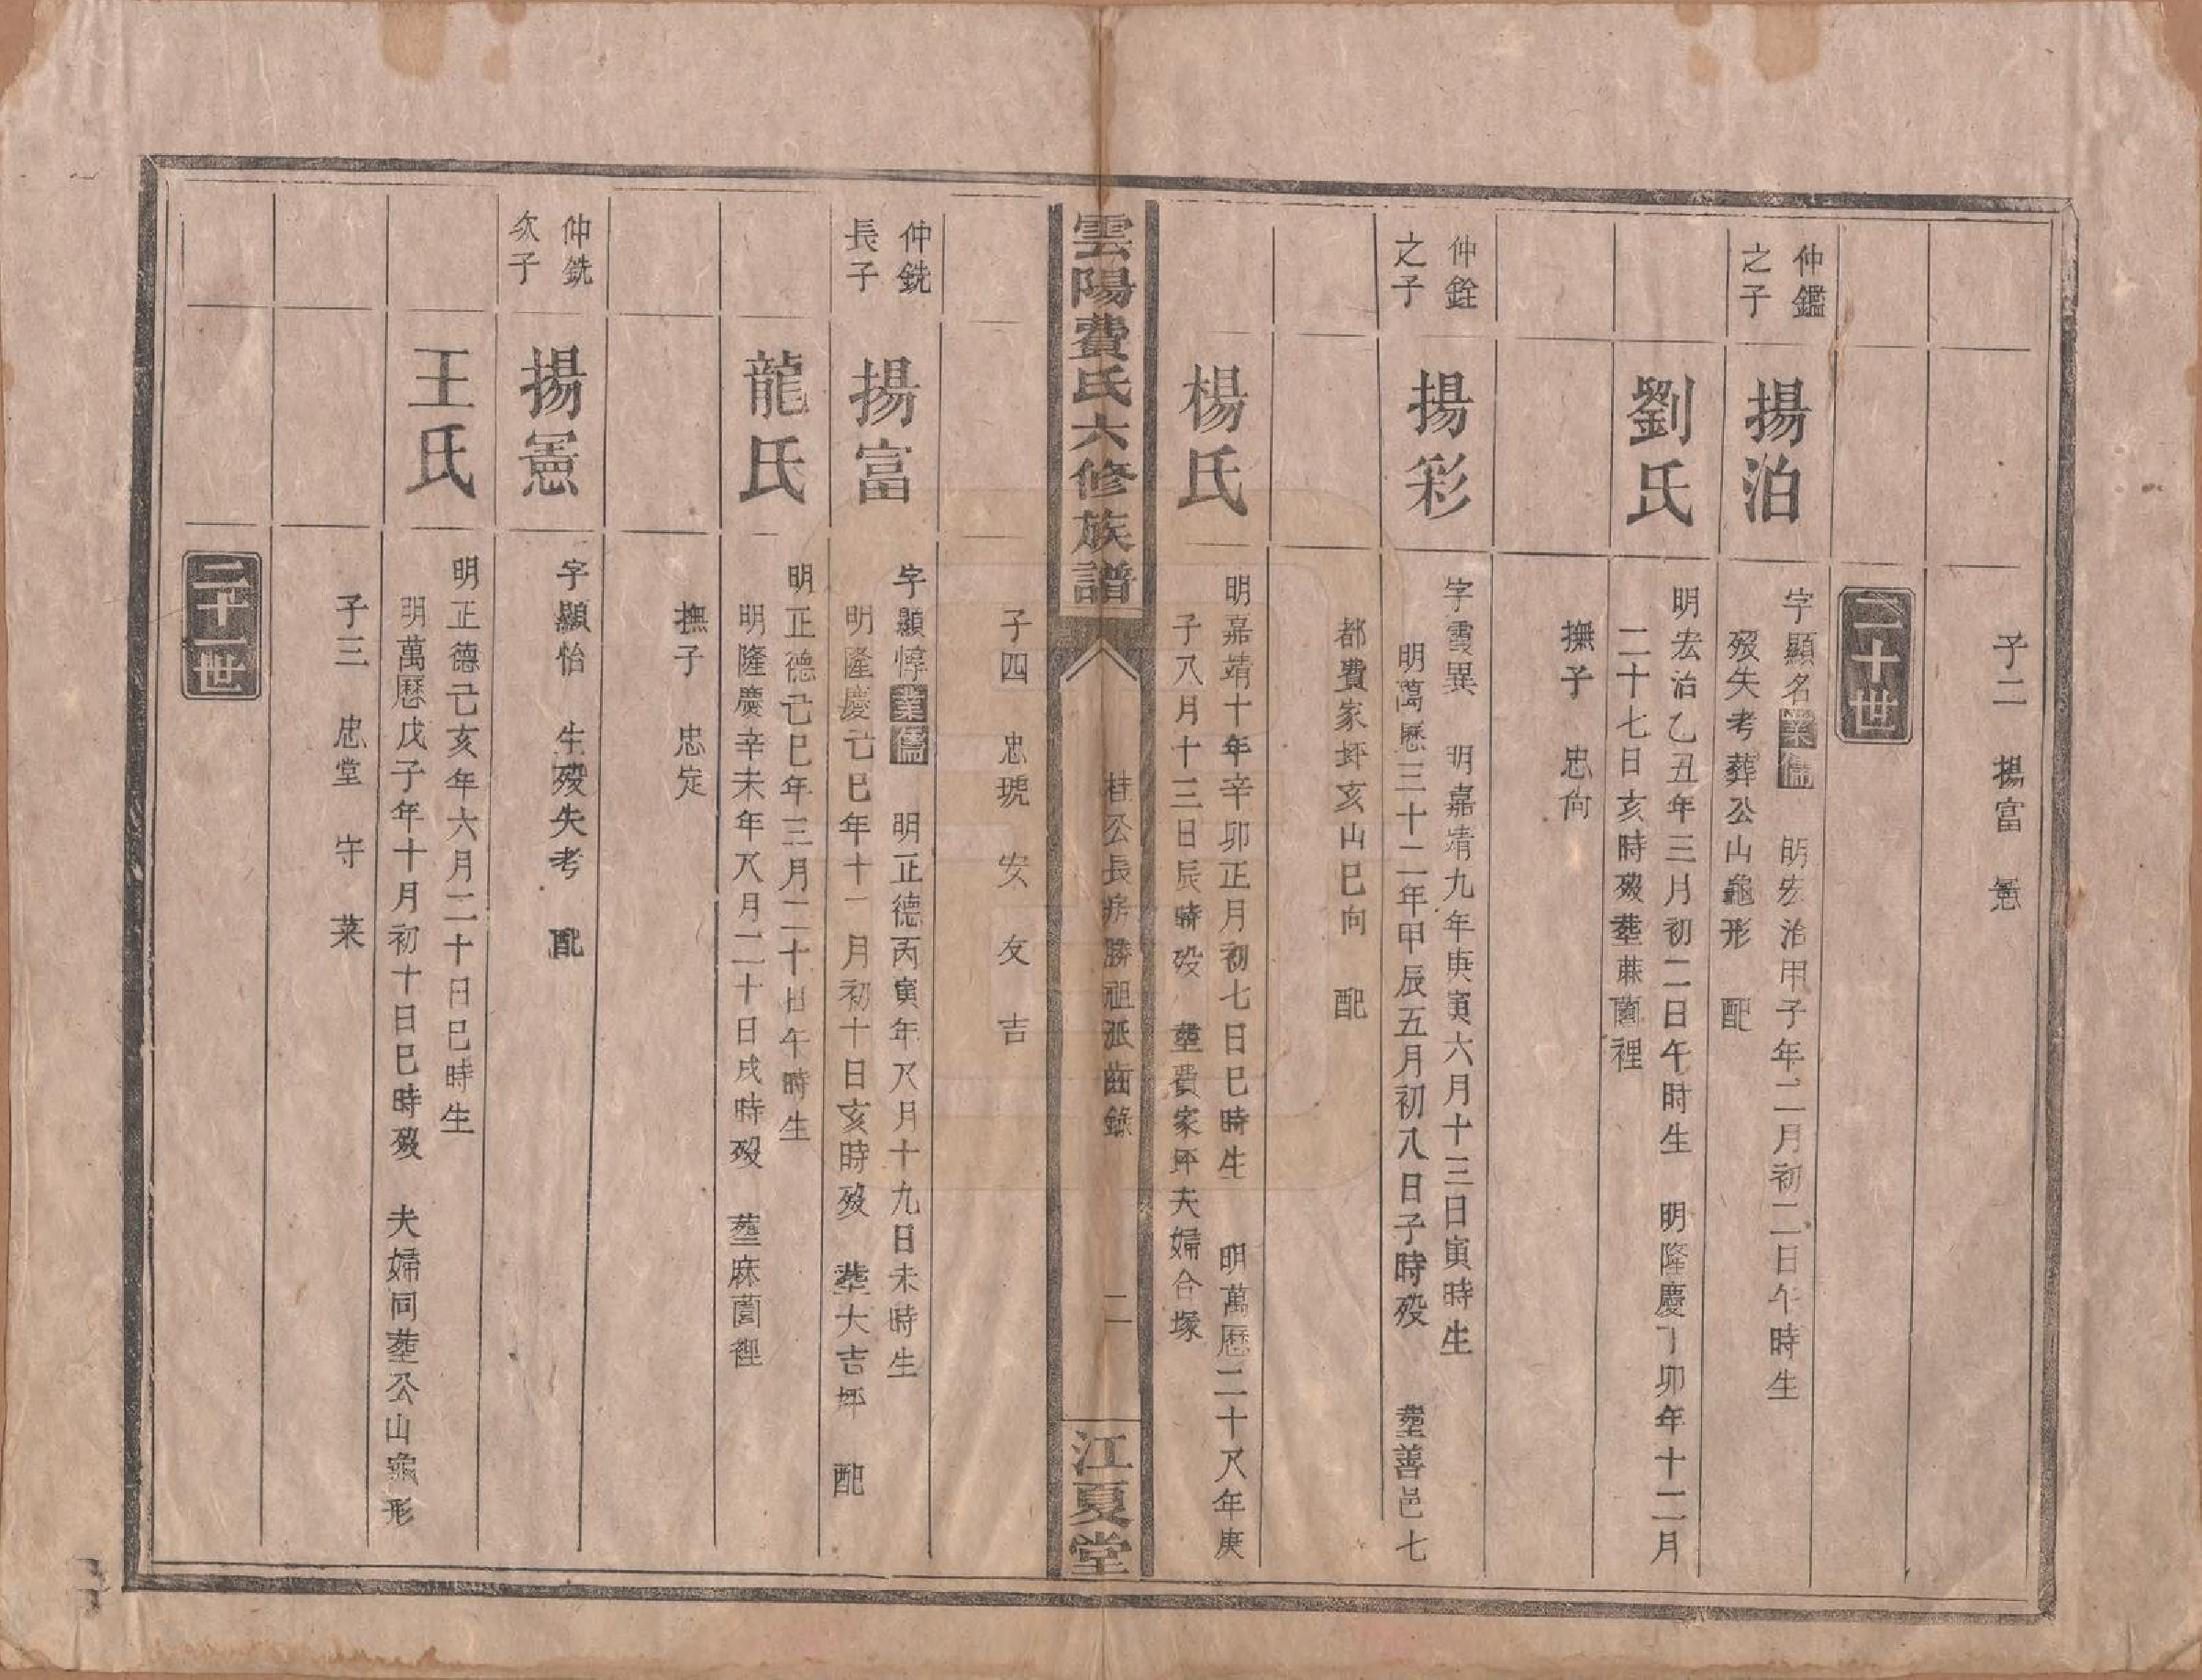 子二　揚富　㥶
二十世
仲鑑之子
揚泊
字顯名業儒　明宏治甲子年二月初二日午時生
歿失考葬公山龜形　配
劉氏
明宏治乙丑年三月初二日午時生　明隆慶丁卯年十二月
二十七日亥時歿塟蔴園裡
撫子　忠向
仲銓之子
揚彩
字霞異　明嘉靖九年庚寅六月十三日寅時生
明萬歷三十二年甲辰五月初八日子時歿　塟善邑七
都費家坪亥山巳向　配
楊氏
明嘉靖十年辛卯正月初七日巳時生　明萬歷二十八年庚
子八月十三日辰時歿　塟費家坪夫婦合塚
雲陽費氏六修族譜
桂公長房勝祖派齒錄
二
江夏堂
子四　忠琥　安　友　吉
仲銑長子
揚富
字顯惇業儒　明正德丙寅年八月十九日未時生
明隆慶己巳年十一月初十日亥時歿　塟大吉坪　配
龍氏
明正德己巳年三月二十日午時生
明隆慶辛未年八月二十日戌時歿　塟麻園裡
撫子　忠定
仲銑次子
揚㥶
字顯怡　生歿失考　配
王氏
明正德己亥年六月二十日巳時生
明萬歷戊子年十月初十日巳時歿　夫婦同塟公山龜形
子三　忠堂　守　萊
二十一世